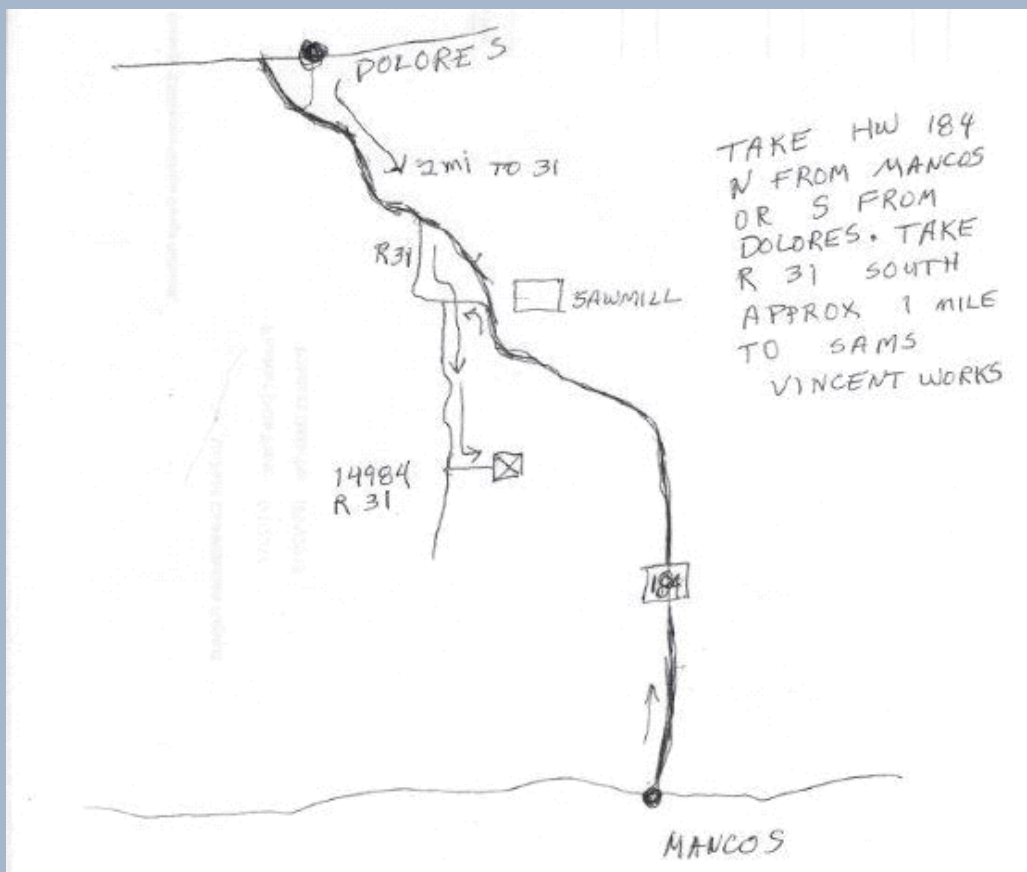 DOLORES
2mi TO 31
TAKE HW 184
N FROM MANCOS
OR S FROM
DOLORES. TAKE
R 31 SOUTH
APPROX 1 MILE
TO SAMS
VINCENT WORKS
R31
SAWMILL
14984
R 31
184
MANCOS